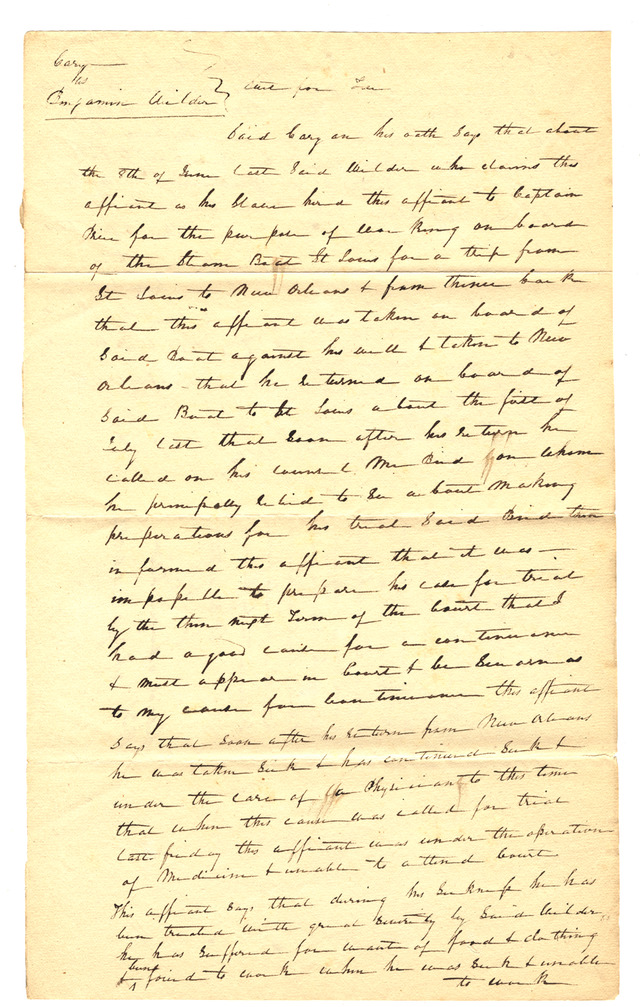 Cary
vs
Benjamin Wilder } Suit for
Said Cary on his oath Says that about
the 8th of June last Said Wilder who claims this
affiant as his Slave hired this affiant to Captain
for the purpose of working on board
of the Steam Boat St Louis for a trip from
St Louis to New Orleans & from thence back
that this affiant was taken on board of
Said Boat against his will & taken to New
Orleans - that he returned on board of
Said Boat to St Louis about the first of
July last that Soon after his return he
called on his counsel Mr Bird on whom
he principally relied to See about making
preparations for his trial Said Bird then
informed this affiant that it was
impossible to prepare his case for trial
by the then next Term of the Court that I
had a good cause for a continuance
& must appear in Court & be Sworn as
to my cause for continuance this affiant
Says that Soon after his return from New Orleans
he was taken Sick & has continued Sick &
under the care of a Physician to this time
that when this cause was called for trial
last friday this affiant was under the operation
of Medicine & unable to attend Court
This affiant Says that during his Sickness he has
been treated with great Severity by Said Wilder,
he has Suffered for want of food & clothing
& been forced to work when he was Sick & unable
to work